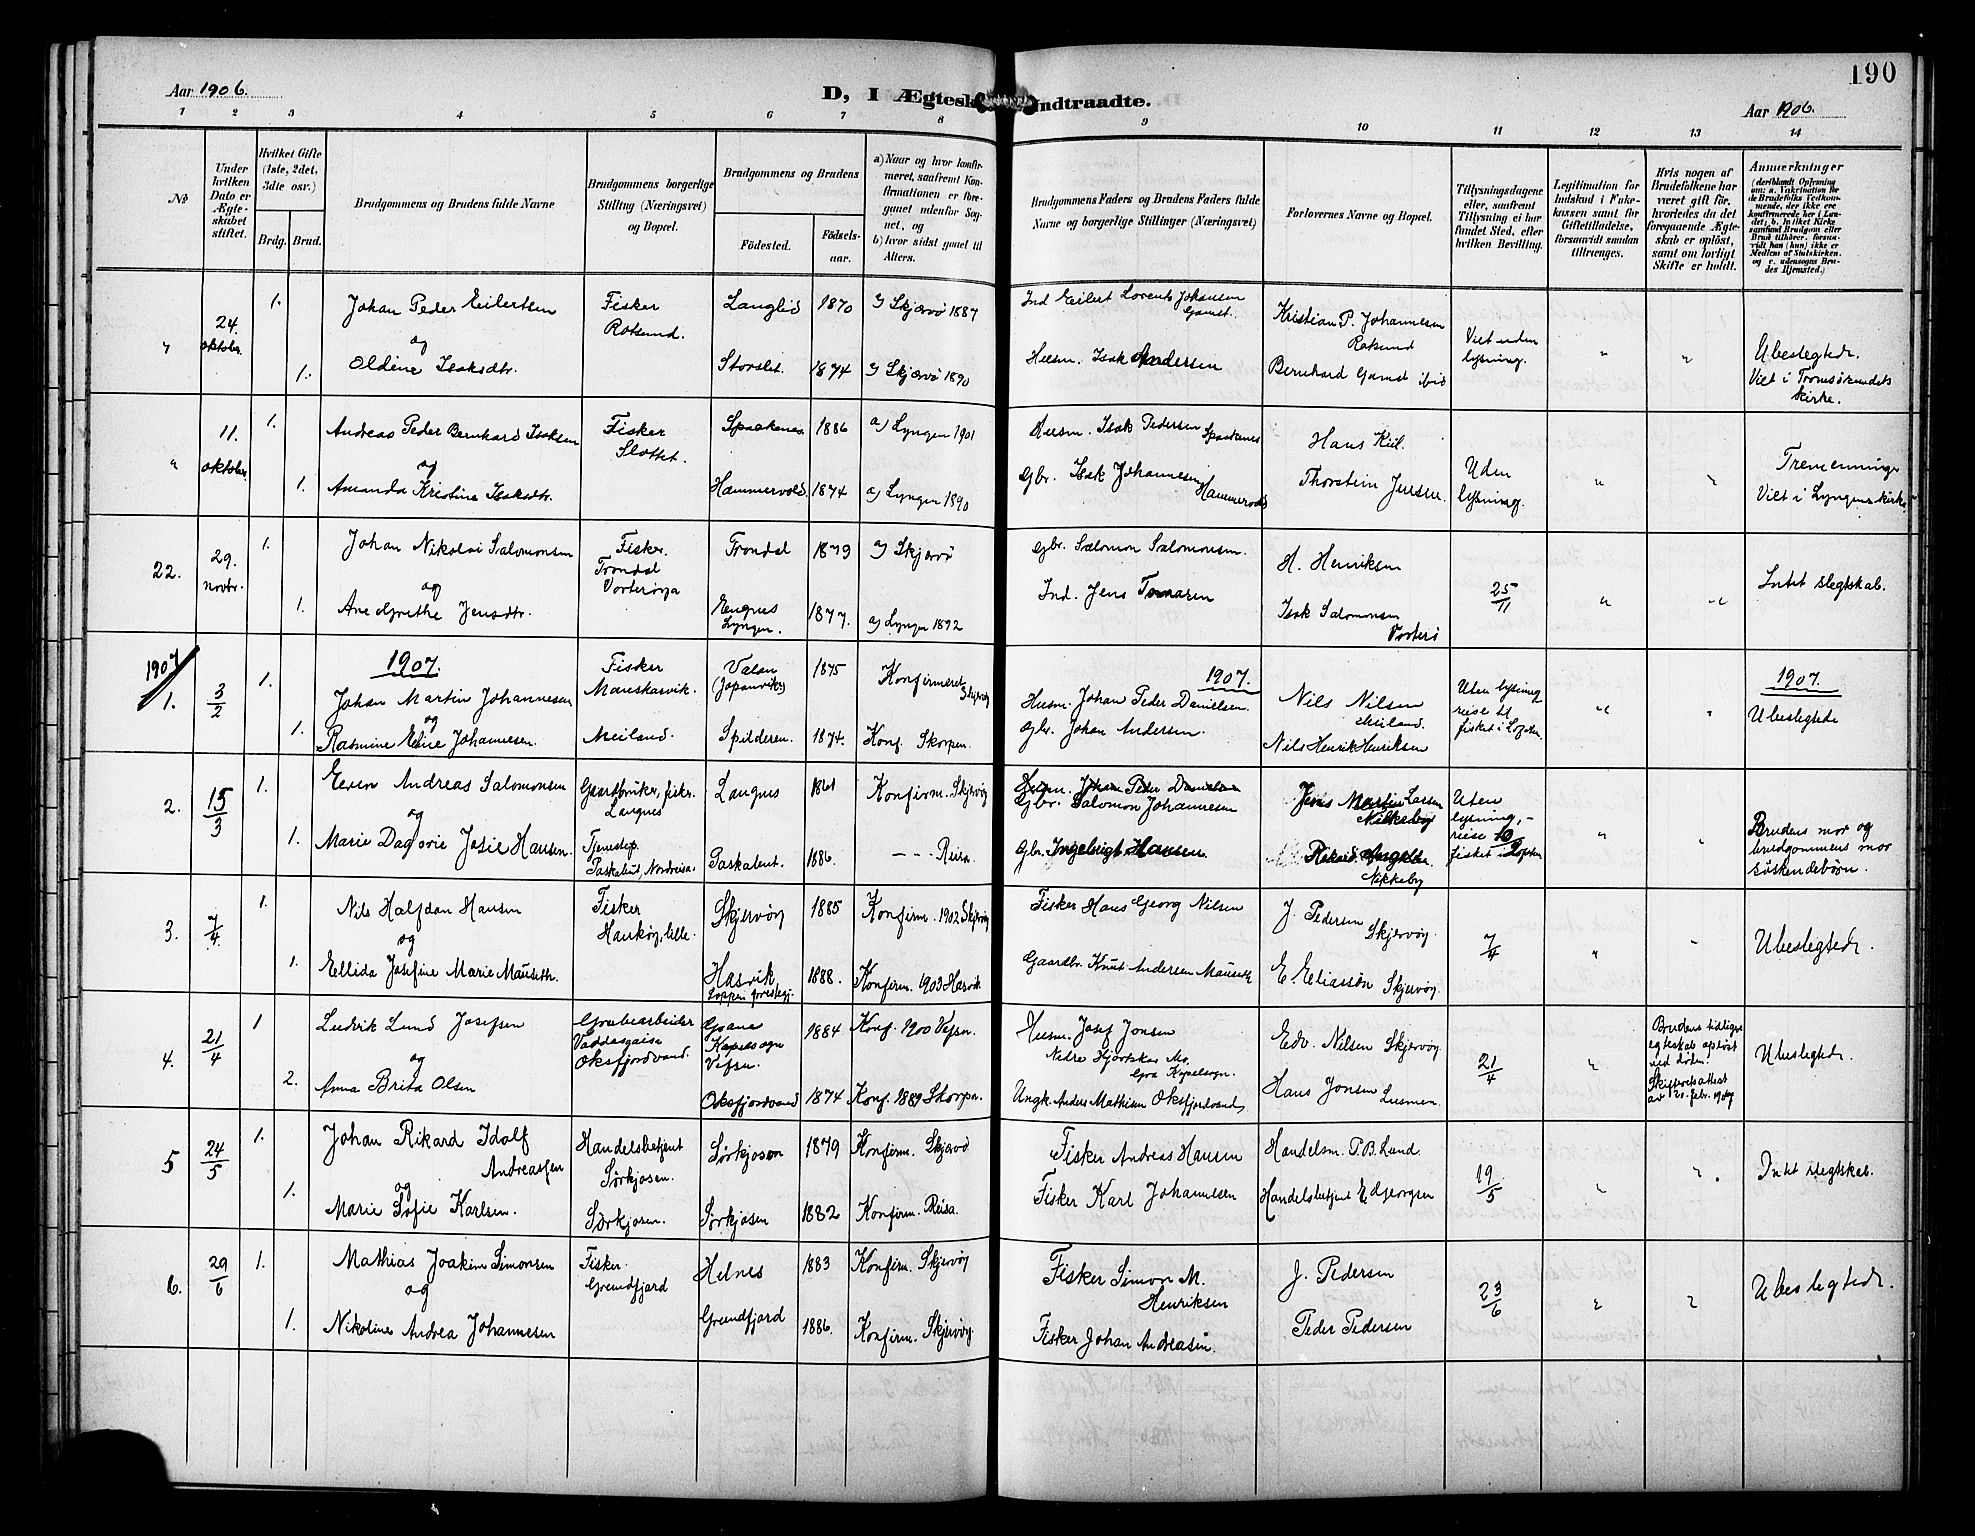 190
Aar 1906.
D, I Ægtesk
Indtraadte.
Aar 1906.
1 2 3 4 5 6 7 8 9 10 11 12 13 14
No
Under hvilken Dato er Ægteskabet stiftet.
Hvilket Gifte (1ste, 2det, 3die osv.)
Brdg. Brud.
Brudgommens og Brudens fulde Navne
Brudgommens borgerlige Stilling (Næringsvei) og Bopæl.
Brudgommens og Brudens
Fødested.
Fødselsaar.
a) Naar og hvor konfirmeret, saafremt Konfirmationen er foregaaet udenfor Sognet, og
b) hvor sidst gaaet til Alters.
Brudgommens Faders og Brudens Faders fulde Navne og borgerlige Stillinger (Næringsvei)
Forlovernes Navne og Bopæl.
Tillysningsdagene eller, saafremt Tillysning ei har fundet Sted, efter hvilken Bevilling.
Legitimation for Indskud i Enkekassen samt for Giftetilladelse, forsaavidt saadan tiltrænges.
Hvis nogen af Brudefolkene har været gift før, hvorledes da det foregaaende Ægteskab er opløst, samt om lovligt Skifte er holdt.
Anmærkninger
(deriblandt Oplysning om: a. Vakcination for de Brudefolks Vedkommende, der ikke ere konfirmerede her i Landet; b. hvilket Kirkesamfund Brudgom eller Brud tilhører, forsaavidt han (hun) ikke er Medlem af Statskirken, og c. udensogns Brudes Hjemsted.)
" 24. oktober 1. Johan Peder Eilertsen Fisker Rotsund Langlid 1870 Skjærvø 1887 Ind Eilert Lorents Johansen Gamst. Kristian P. Johannesen Rotsund Viet uden lysning. " " Ubeslegtede. Viet i Tromsøsundets kirke.
og
1. Oldine Isaksdtr. Storslet. 1874 Skjærvø 1890 Husm. Isak Andersen Bernhard Gamst ibid
" 11. oktober 1. Andreas Peder Bernhard Isaksen Fisker Slottet. Spaakenes 1886 a) Lyngen 1901 Husm. Isak Pedersen Spaakenes Hans Kiil. Uden lysning. " " Tremenninger Viet i Lyngens kirke
og
1. Amanda Kristine Isaksdtr. Hammervold. 1874 a) Lyngen 1890 Gbr. Isak Johannesen Hammervold Thorstein Jensen
22. 29. novbr. 1. Johan Nikolai Salomonsen Fisker. Trondal Vorterøya Trondal 1879 a) Skjærvø Gbr. Salomon Salomonsen. H. Henriksen 25/11 " " Intet slegtskab.
og
1. Ane Grethe Jensdtr. Engnes Lyngen. 1877. a) Lyngen 1892 Ind. Jens Isak Salomonsen Vorterø
1907
1907. 1907. 1907.
1. 3/2 1. Johan Martin Johannesen Fisker Mareskasvik. Valan (Jøpanvik.) 1875 Konfirmeret Skjervøy Husm. Johan Peder Danielsen. Nils Nilsen Meiland. Uten lysning reise til fisket i Lofoten. " " Ubeslegtede
og
1. Rasmine Eline Johannesen. Meiland. Spilderen. 1874. Konf. Skorpen. Gbr. Johan Andersen. Nils Henrik Henriksen
2. 15/3 1. Even Andreas Salomonsen Gaardbruker, fisker. Langnes Langnes 1861 Konfirm. Skjervøy Husm. Johan Peder Danielsen Gbr. Salomon Johannesen Jens Martin Lassen Nikkeby Uten lysning, - reise fisket i Lofoten " " Brudens mor og brudgommens mor søskendebørn.
og
1. Marie Dagovie Josie Hansen. Tjenestep. Paskalent, Nordreisa. Paskalent. 1886. - - - Reisa. Gbr. Ingebrigt Hansen. Rikard Nikkeby
3. 7/4 1. Nils Halfdan Hansen Fisker Haukøy, lille. Skjervøy 1885 Konfirm. 1902 Skjervøy Fisker Hans Georg Nilsen J. Pedersen Skjervøy. 7/4 " " Ubeslegtede.
og
1. Ellida Josefine Marie Mauseth. Hasvik Loppen prestegj. 1888. Konfirm. 1903 Hasvik Gaardbr. Knut Andersen Mauseth E. Eliassøn Skjervøy.
4. 21/4 1 Ludvik Lund Josefsen Grubearbeider Vaddasgaisa Oksfjordvand. Grane Kapelsogn Vefsn. 1884 Konf. 1900 Vefsn. Husm. Josef Jonsen Nedre Hjortskar Mo. Gra. Kapelsogn. Edv. Nilsen Skjervøy 21/4 " Brudens tidligere egteskab opløst ved døden. Skifteretsattest av 20. febr. 1907 Ubeslegtede.
og
2. Anna Brita Olsen Oksfjordvand 1874 Konf. 1889 Skorpen. Ungk. Anders Mathisen Oksfjordvand Hans Jonsen
5 24/5 1. Johan Rikard Idolf Andreassen Handelsbetjent Sørkjosen. Sørkjosen 1879 Konfirm. Skjærvø Fisker Andreas Hansen Handelsm. P. B. Lund. 19/5 " " Intet slegtskab.
og
1. Marie Sofie Karlsen. Sørkjosen. Sørkjosen 1882 Konfirm. Reisa. Fisker Karl Johannesen Handelsbetjent E. Georgsen
6. 29/6 1. Mathias Joakim Simonsen Fisker. Grundfjord Helnes 1883 Konfirm. Skjervøy Fisker Simon M. Henriksen J. Pedersen 23/6 " " Ubeslegtede.
og
1. Nikoline Andrea Johannesen Grundfjord 1886. Konfirm. Skjervøy. Fisker Johan Andreasen. Peder Pedersen